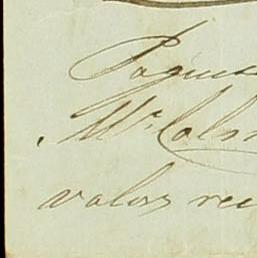 Pagues
Mr. Colm
valor rec